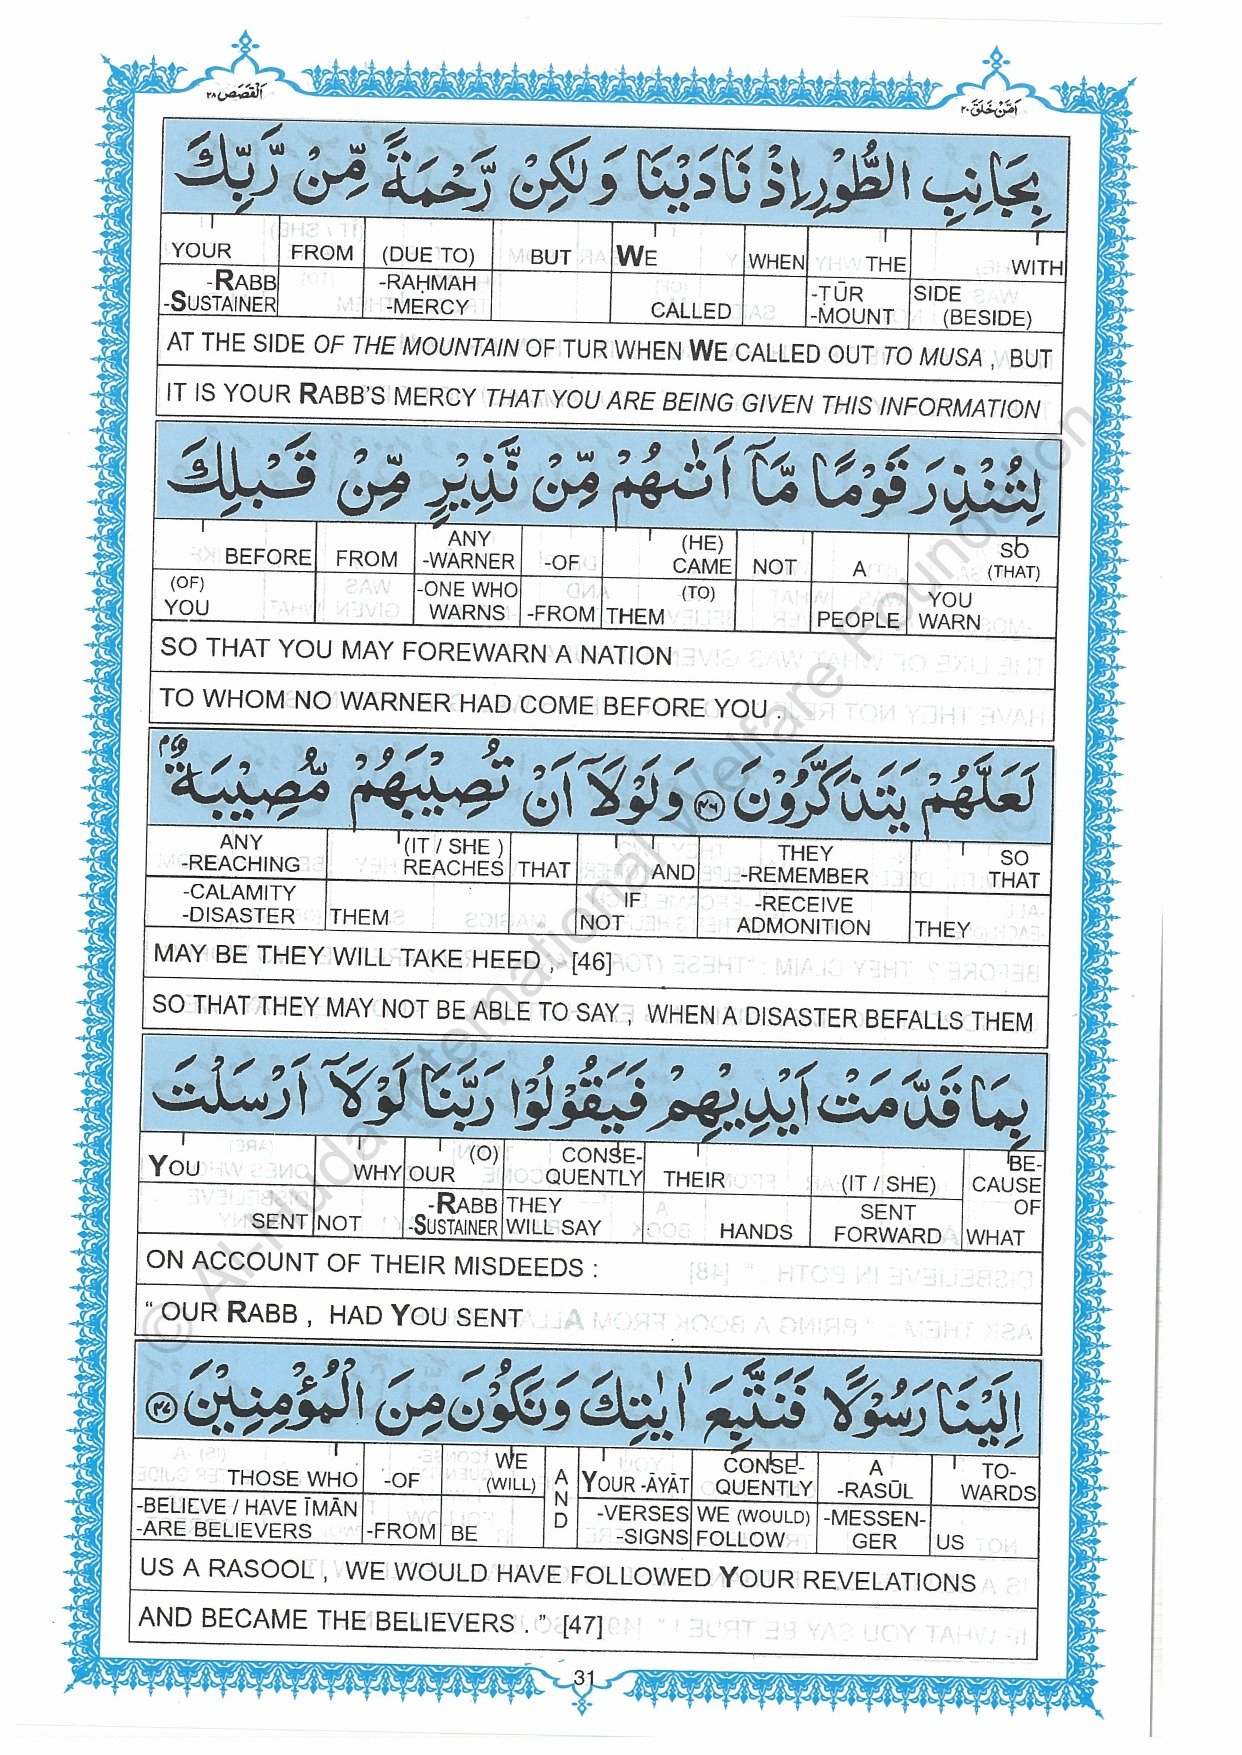 القصص ٢٨
امّن خلق ٢٠
بِجَانِبِ الطُّوْرِ اِذْ نَادَيْنَا وَلٰكِنْ رَّحْمَةً مِّنْ رَّبِّكَ
YOUR FROM (DUE TO) BUT WE WHEN THE WITH
-RABB -RAḤMAH CALLED -TŪR SIDE
-SUSTAINER -MERCY -MOUNT (BESIDE)
AT THE SIDE OF THE MOUNTAIN OF TUR WHEN WE CALLED OUT TO MUSA , BUT
IT IS YOUR RABB'S MERCY THAT YOU ARE BEING GIVEN THIS INFORMATION
لِتُنْذِرَ قَوْمًا مَّآ اَتٰىهُمْ مِّنْ نَّذِيْرٍ مِّنْ قَبْلِكَ
BEFORE FROM ANY -WARNER -OF (HE) CAME NOT A SO (THAT)
(OF) YOU -ONE WHO WARNS -FROM THEM (TO) PEOPLE YOU WARN
SO THAT YOU MAY FOREWARN A NATION
TO WHOM NO WARNER HAD COME BEFORE YOU .
لَعَلَّهُمْ يَتَذَكَّرُوْنَ ۝٤٦ وَلَوْلَآ اَنْ تُصِيْبَهُمْ مُّصِيْبَةٌۢ
ANY -REACHING (IT / SHE ) REACHES THAT AND THEY -REMEMBER SO THAT
-CALAMITY -DISASTER THEM IF NOT -RECEIVE ADMONITION THEY
MAY BE THEY WILL TAKE HEED , [46]
SO THAT THEY MAY NOT BE ABLE TO SAY , WHEN A DISASTER BEFALLS THEM
بِمَا قَدَّمَتْ اَيْدِيْهِمْ فَيَقُوْلُوْا رَبَّنَا لَوْلَآ اَرْسَلْتَ
YOU WHY (O) OUR CONSE-QUENTLY THEIR (IT / SHE) BE-CAUSE OF
SENT NOT -RABB -SUSTAINER THEY WILL SAY HANDS SENT FORWARD WHAT
ON ACCOUNT OF THEIR MISDEEDS :
“ OUR RABB , HAD YOU SENT
اِلَيْنَا رَسُوْلًا فَنَتَّبِعَ اٰيٰتِكَ وَنَكُوْنَ مِنَ الْمُؤْمِنِيْنَ ۝٤٧
THOSE WHO -OF WE (WILL) AND YOUR -ĀYĀT CONSE-QUENTLY A -RASŪL TO-WARDS
-BELIEVE / HAVE ĪMĀN -ARE BELIEVERS -FROM BE -VERSES -SIGNS WE (WOULD) FOLLOW -MESSEN-GER US
US A RASOOL , WE WOULD HAVE FOLLOWED YOUR REVELATIONS
AND BECAME THE BELIEVERS . ” [47]
31
© Al-Huda International Welfare Foundation